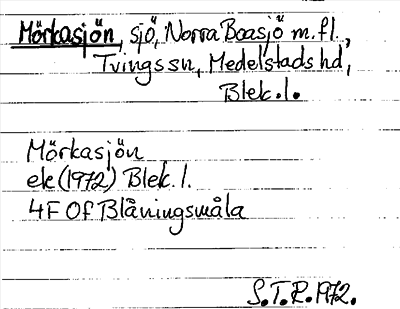 Mörkasjön, sjö, Norra Boasjö m.fl.,
Tvings sn, Medelstads hd,
Blek. l.
Mörkasjön
ek (1972) Blek. l.
4F 0f Blåningsmåla
S.T.R. 1972.